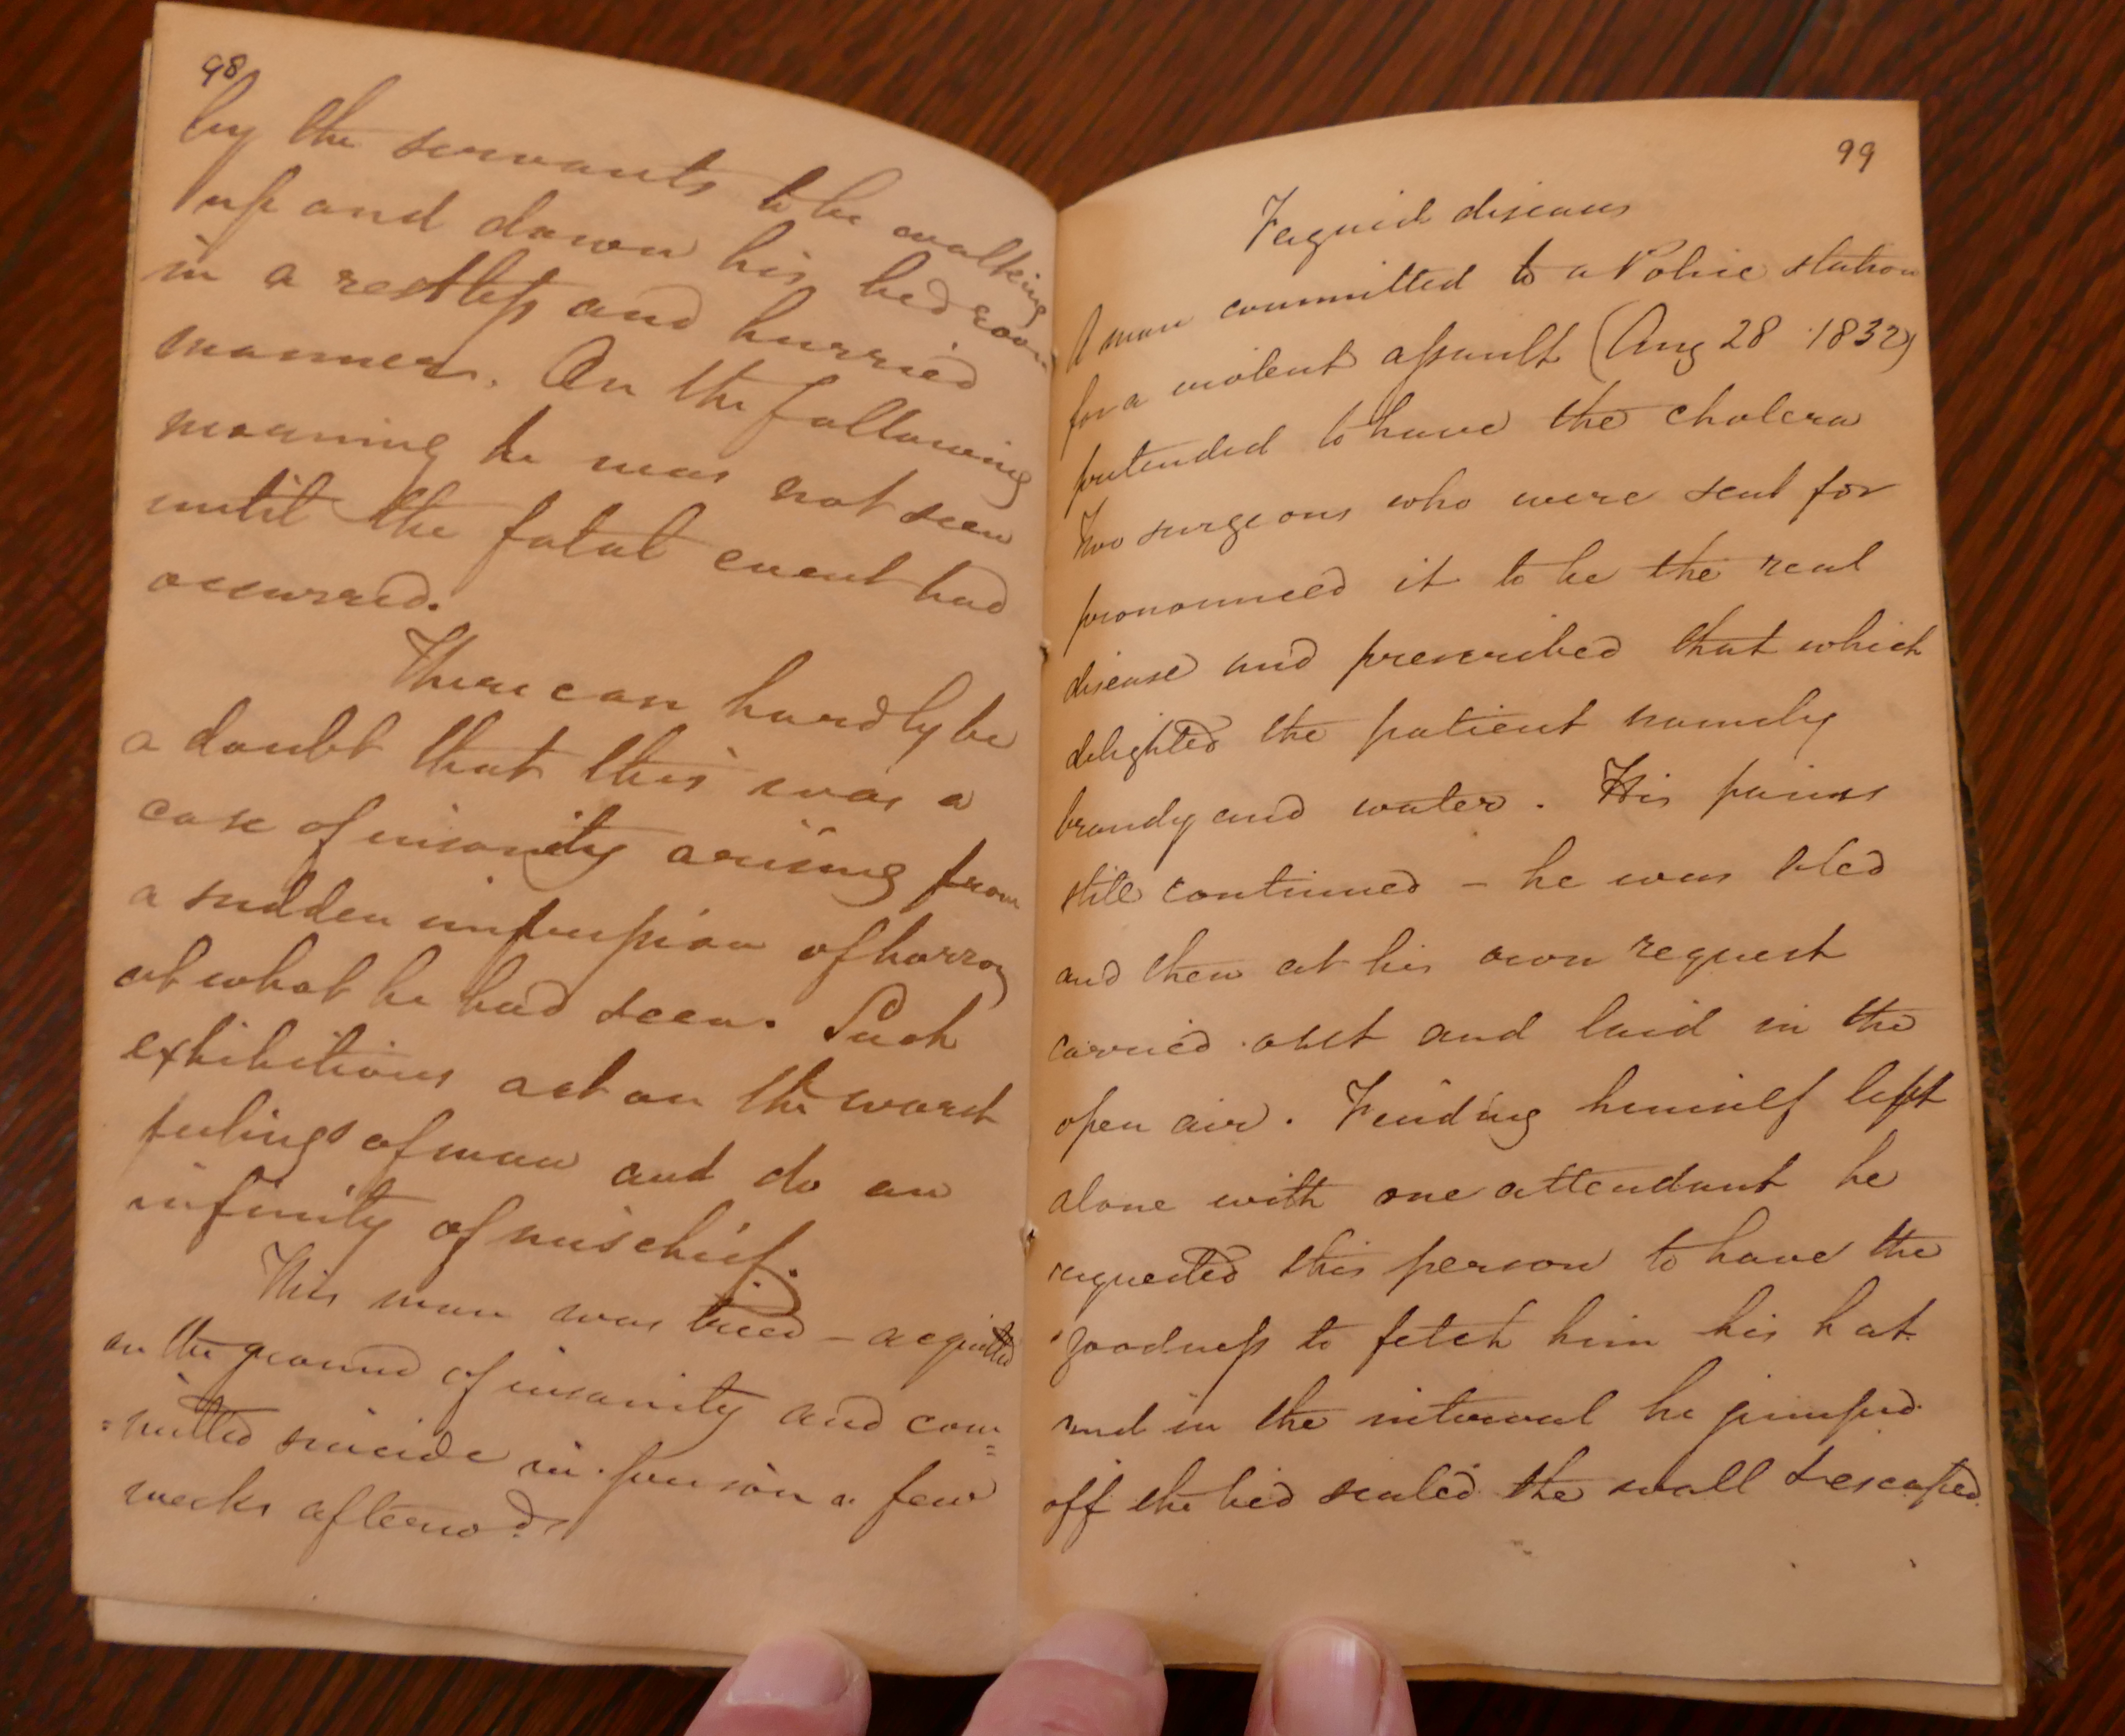 98
by the servants to be walking
up and down his bedroom
in a restless and hurried
manner. On the following
morning he was not seen
until the fatal event had
occurred.
There can hardly be
a doubt that this was a
case of insanity arising from
a sudden impression of horror
at what he had seen. Such
exhibitions act on the worst
feelings of man and do an
infinity of mischief.
This man was tried – acquitted
on the ground of insanity and com=
=mitted suicide in prison a few
weeks afterwds
99
Feigned diseases
A man committed to a Police station
for a violent assault (Aug 28 1832)
pretended to have the cholera
Two surgeons who were sent for
pronounced it to be the real
disease and prescribed that which
delighted the patient namely
brandy and water. His pains
still continued – he was bled
and then at his own request
carried out and laid in the
open air. Finding himself left
alone with one attendant he
requested this person to have the
goodness to fetch him his hat
and in the interval he jumped
off the bed scaled the wall & escaped.